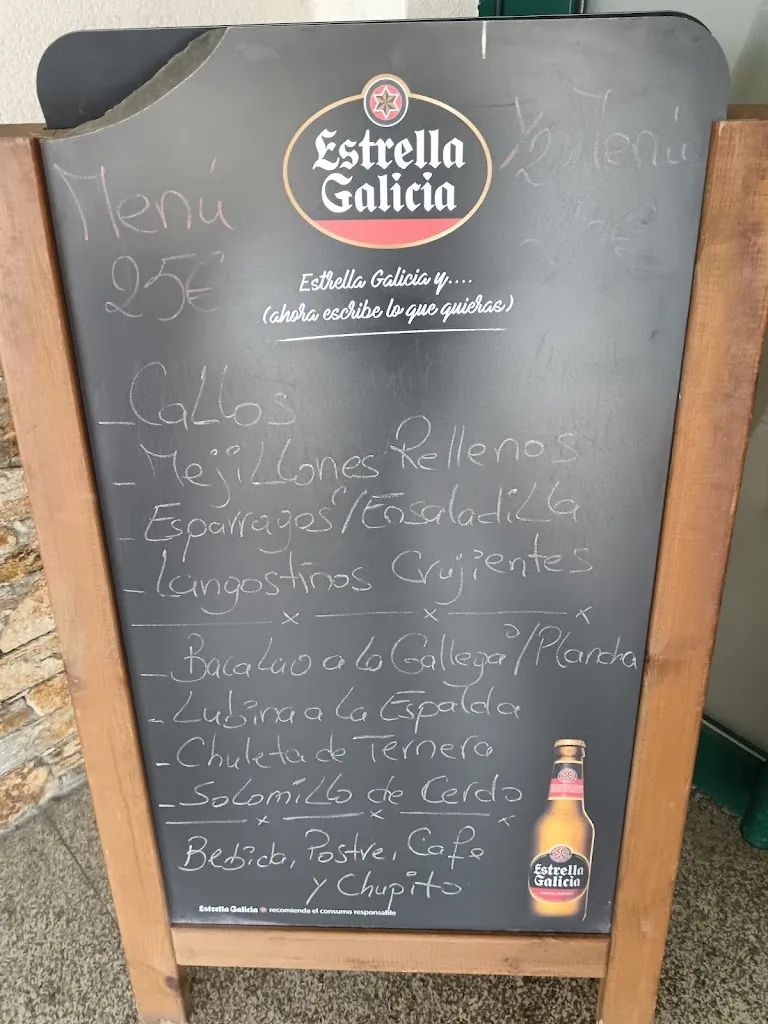 Estrella
Galicia
Menú
25€
1/2 Menú
Estrella Galicia y....
(ahora escribe lo que quieras)
- Callos
- Mejillones Rellenos
- Esparragos/Ensaladilla
- Langostinos Crujientes
- Bacalao a la Gallega/Plancha
- Lubina a la Espalda
- Chuleta de Ternera
- Solomillo de Cerdo
Bebida, Postre, Cafe
y Chupito
Estrella
Galicia
Estrella Galicia recomienda el consumo responsable